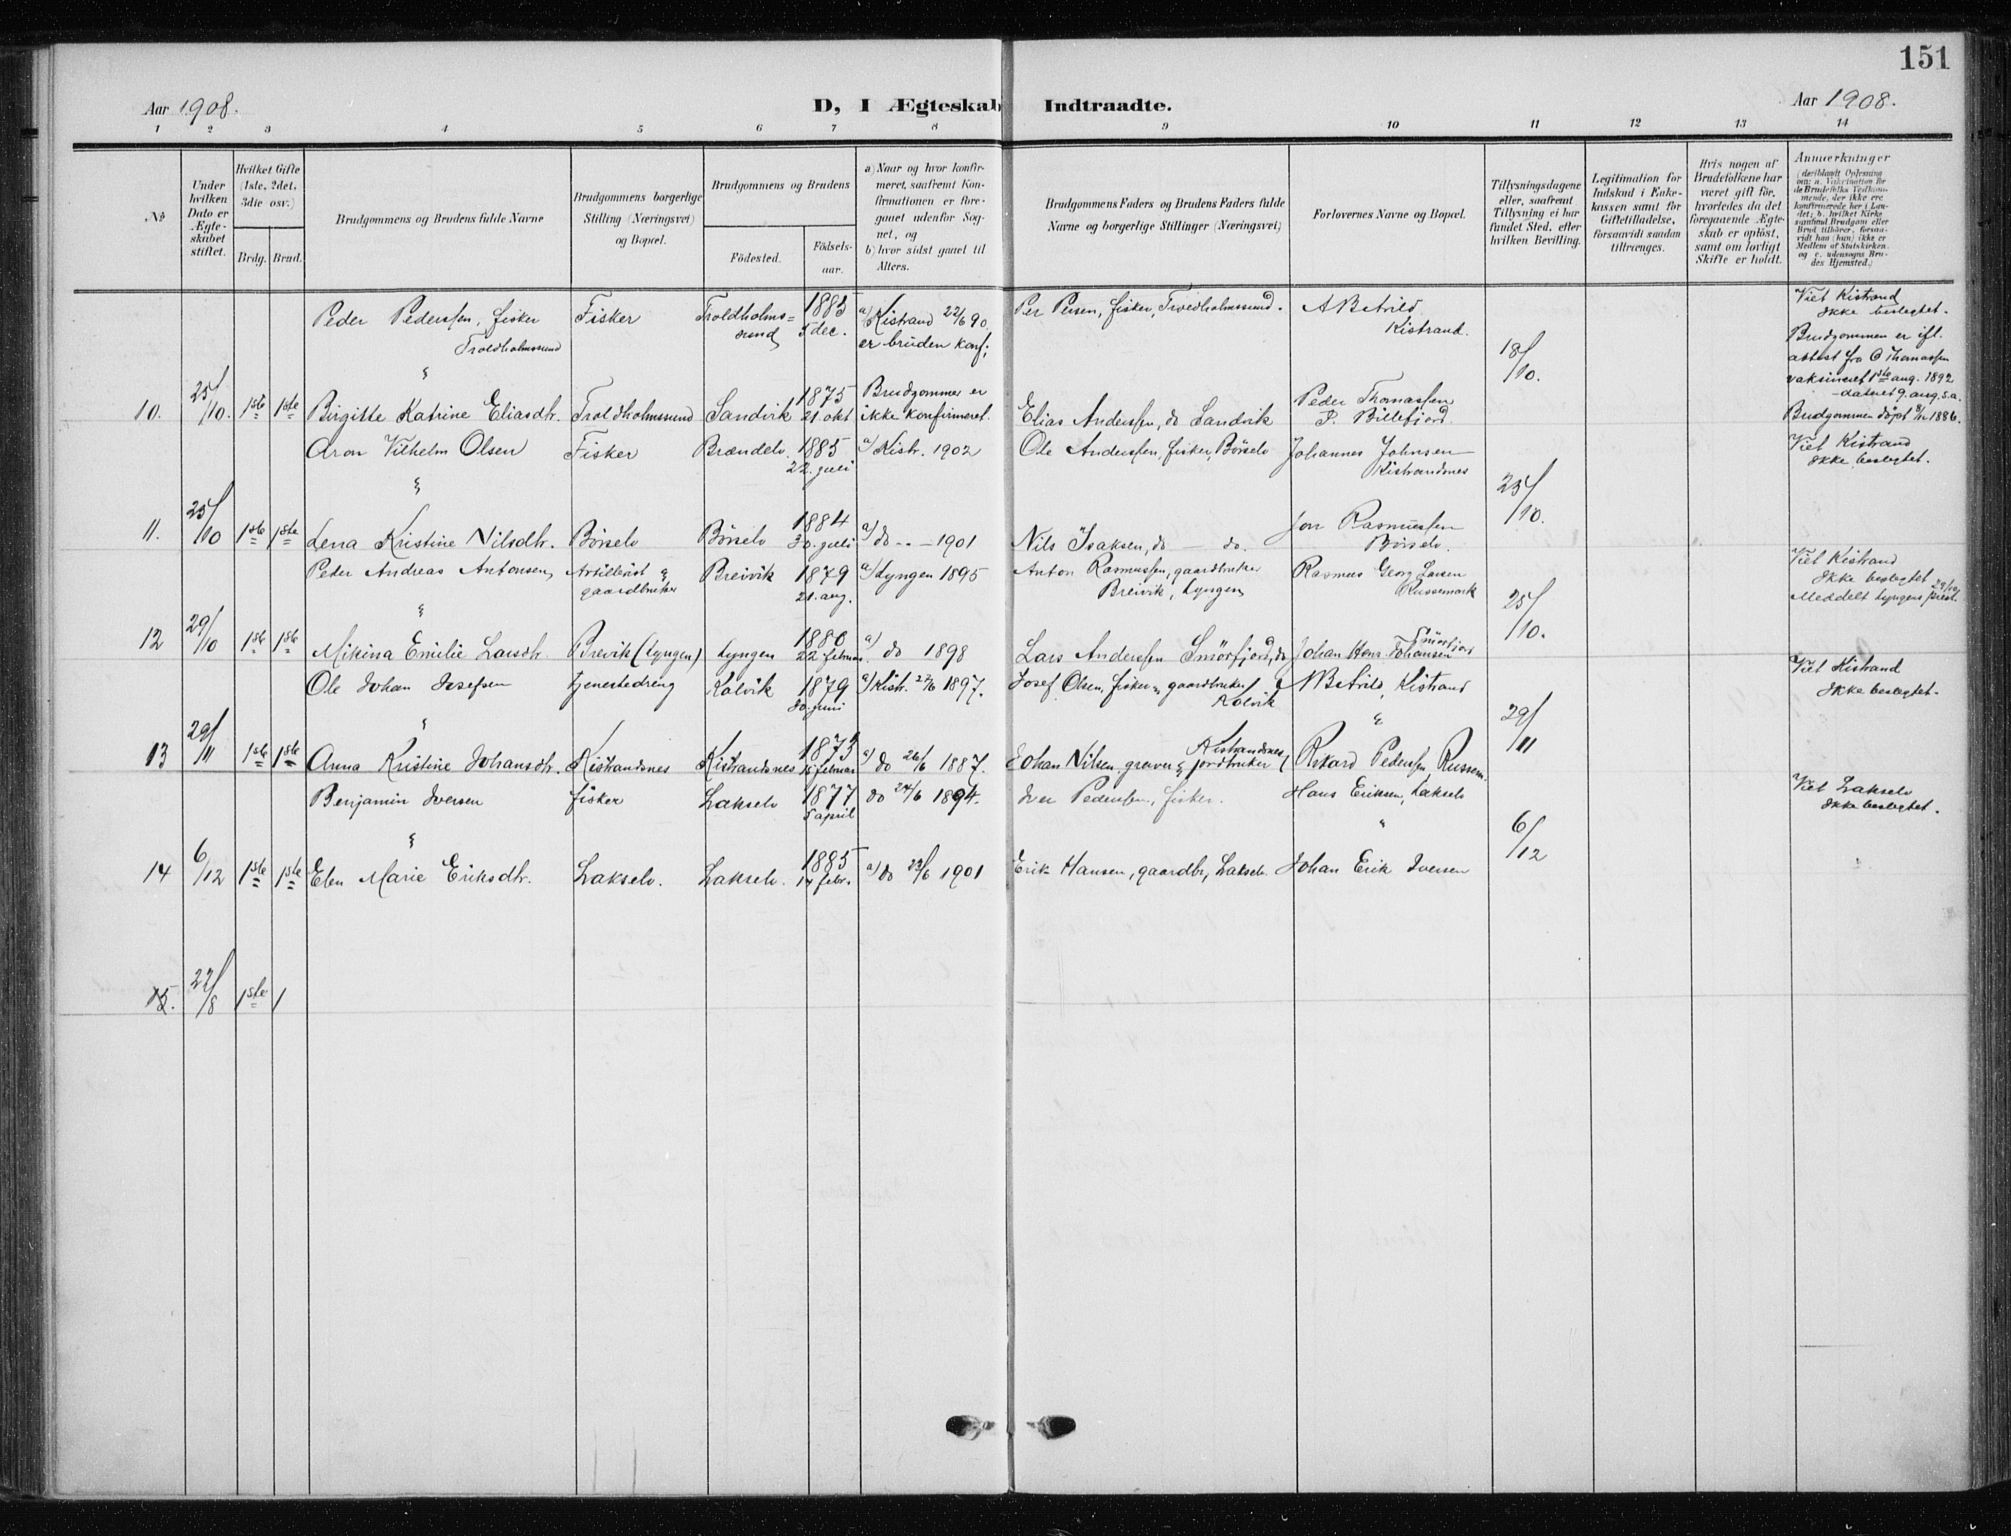 151
Aar 1908.
D, I Ægteskab Indtraadte.
Aar 1908.
1 2 3 4 5 6 7 8 9 10 11 12 13 14
No
Under hvilken Dato er Ægteskabet stiftet.
Hvilket Gifte (1ste, 2det, 3die osv.)
Brdg. Brud.
Brudgommens og Brudens fulde Navne
Brudgommens borgerlige Stilling (Næringsvei) og Bopæl.
Brudgommens og Brudens
Födested.
Födselsaar.
a) Naar og hvor konfirmeret, saafremt Konfirmationen er foregaaet udenfor Sognet, og
b) hvor sidst gaaet til Alters.
Brudgommens Faders og Brudens Faders fulde Navne og borgerlige Stillinger (Næringsvei)
Forlovernes Navne og Bopæl.
Tillysningsdagene eller, saafremt Tillysning ei har fundet Sted, efter hvilken Bevilling.
Legitimation for Indskud i Enkekassen samt for Giftetilladelse, forsaavidt saadan tiltrænges.
Hvis nogen af Brudefolkene har været gift för, hvorledes da det foregaaende Ægteskab er oplöst, samt om lovligt Skifte er holdt.
Anmerkninger
Peder Pedersen, fisker Troldholmsund Fisker Troldholmssund 1885 5 dec. a) Kistrand 22/6 90 er bruden konf; Per Persen, fisker, Troldholmsund. A Betvild Kistrand. Viet Kistrand Ikke beslegtet.
Brudgommen er ifl. attest fra O Thomassen vaksineret 1ste aug. 1892 - dateret 9. aug. s.a.
"
18/10.
10. 25/10. 1ste 1ste Birgitte Katrine Eliasdtr. Troldholmssund Sandvik 1875 21. okt Brudgommen er ikke konfirmeret. Elias Andersen, do Sandvik Peder Thomassen P. Billefjord. Brudgommen döpt 1886.
Aron Vilhelm Olsen Fisker Brændelv 1885 22. juli a) Kistr. 1902 Ole Andersen, fisker, Börselv Johannes Johnsen Kistrandnes Viet Kistrand Ikke beslegtet.
"
25/10.
11. 25/10 1ste 1ste Lena Kristine Nilsdtr. Börselv Börselv 1884 30. juli a) do - - 1901 Nils Isaksen, do - do. Jon Rasmussen Börselv.
Peder Andreas Antonsen, Artillerist & gaardbruker Breivik 1879 21. aug. a) Lyngen 1895 Anton Rasmussen, gaardbruker Breivik, Lyngen Rasmus Georg Larsen Russemark Viet Kistrand Ikke beslegtet Meddelt Lyngens prest. 29/10
"
25/10.
12 29/10 1ste 1ste Mikina Emilie Larsdtr. Brevik (Lyngen) Lyngen 1880 22 februar. a) do 1898 Lars Andersen Smörfjord, do Johan Henr. Johansen Smörfjord
Ole Johan Josefsen tjenestedreng Kolvik 1879 30. juni a) Kistr. 27/6 1897. Josef Olsen, fisker & gaardbruker Kolvik A Betvild, Kistrand Viet Kistrand Ikke beslegtet.
" "
29/11
13 29/11 1ste 1ste Anna Kristine Johansdtr. Kistrandsnes Kistrandsnes 1873 15 februar a) do 26/6 1887. Johan Nilsen graver & jordbruker Kistrandsnes Rikard Pedersen Russem.
Benjamin Iversen fisker Lakselv 1877 5 april do 24/6 1894. Iver Pedersen, fisker. Hans Eriksen, Lakselv Viet Lakselv Ikke beslegtet.
" "
6/12
14 6/12 1ste 1ste Elen Marie Eriksdtr. Lakselv. Lakselv. 1885 14 febr. a) do 23/6 1901 Erik Hansen, gaardbr, Lakselv. Johan Erik Iversen
15. 22/8 1ste 1